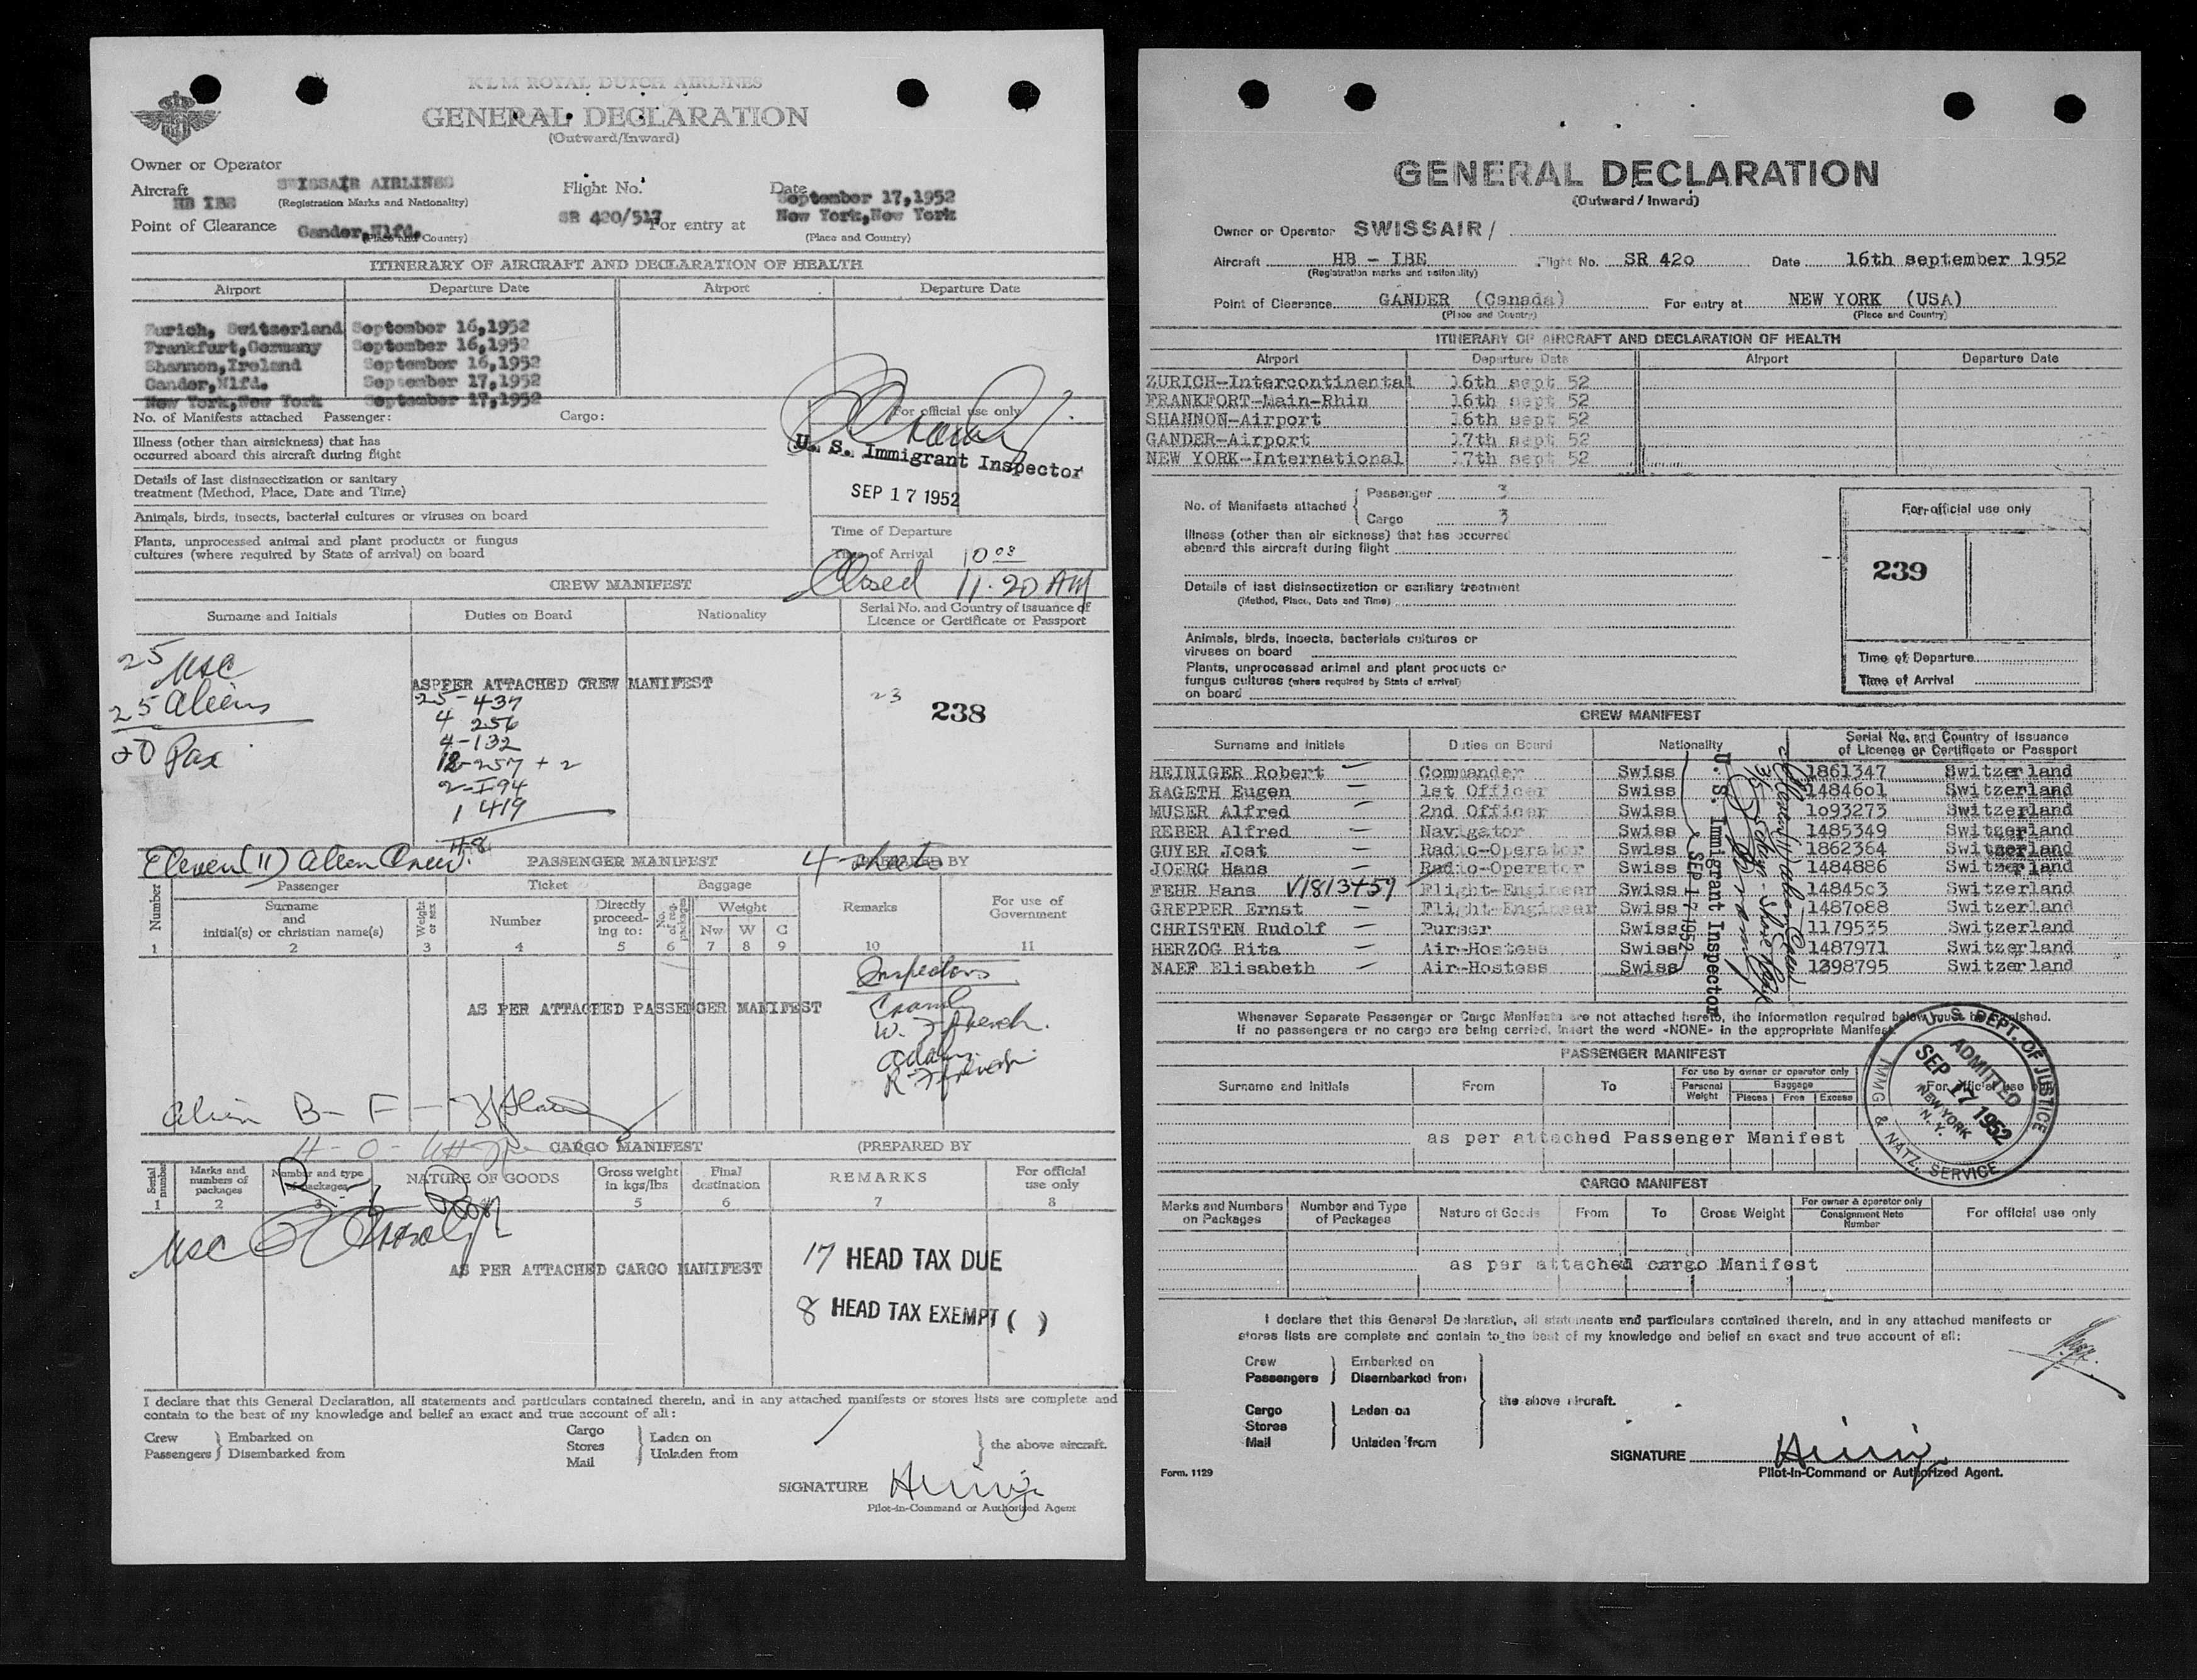 KLM ROYAL DUTCH AIRLINES
GENERAL DECLARATION
(Outward/Inward)
Owner or Operator
SWISSAIR AIRLINES
Aircraft HB IBE
(Registration Marks and Nationality)
Flight No.
SR 420/517
Date
September 17,1952
Point of Clearance Gander,Nlfd.
(Place and Country)
For entry at New York,New York
(Place and Country)
ITINERARY OF AIRCRAFT AND DECLARATION OF HEALTH
Airport Departure Date Airport Departure Date
Zurich, Switzerland September 16,1952
Frankfurt,Germany September 16,1952
Shannon,Ireland September 16,1952
Gander,Nlfd. September 17,1952
New York,New York September 17,1952
No. of Manifests attached Passenger: Cargo:
For official use only
Illness (other than airsickness) that has
occurred aboard this aircraft during flight
U. S. Immigrant Inspector
Details of last disinsectization or sanitary
treatment (Method, Place, Date and Time)
SEP 17 1952
Animals, birds, insects, bacterial cultures or viruses on board
Plants, unprocessed animal and plant products or fungus
cultures (where required by State of arrival) on board
Time of Departure
Time of Arrival 10 03
Closed 11.20 AM
CREW MANIFEST
Surname and Initials Duties on Board Nationality Serial No. and Country of issuance of
Licence or Certificate or Passport
25 USC
25 Aliens
Pax
ASPPER ATTACHED CREW MANIFEST
25-437
4 256
4-132
12-257 + 2
2-I94
1 419
48
23
238
Eleven (11) Alien Crew.
PASSENGER MANIFEST
4-sheets
PREPARED BY
Number Passenger Ticket Baggage Remarks For use of
Government
Surname
and
initial(s) or christian name(s)
Weight or sex
Number
Directly
proceed-
ing to:
No. of reg. packages
Weight
Nw W C
1 2 3 4 5 6 7 8 9 10 11
AS PER ATTACHED PASSENGER MANIFEST
Inspectors
Alien B- F-
CARGO MANIFEST
(PREPARED BY
Serial number
Marks and
numbers of
packages
Number and type
of packages
NATURE OF GOODS
Gross weight
in kgs/lbs
Final
destination
REMARKS
For official
use only
1 2 3 4 5 6 7 8
USC
AS PER ATTACHED CARGO MANIFEST
17 HEAD TAX DUE
8 HEAD TAX EXEMPT ( )
I declare that this General Declaration, all statements and particulars contained therein, and in any attached manifests or stores lists are complete and
contain to the best of my knowledge and belief an exact and true account of all:
Crew
Passengers
Embarked on
Disembarked from
Cargo
Stores
Mail
Laden on
Unladen from
the above aircraft.
SIGNATURE
Pilot-in-Command or Authorised Agent
GENERAL DECLARATION
(Outward / Inward)
Owner or Operator SWISSAIR /
Aircraft HB - IBE Flight No. SR 42o Date 16th september 1952
(Registration marks and nationality)
Point of Clearance GANDER (Canada) For entry at NEW YORK (USA)
(Place and Country) (Place and Country)
ITINERARY OF AIRCRAFT AND DECLARATION OF HEALTH
Airport Departure Date Airport Departure Date
ZURICH-Intercontinental 16th sept 52
FRANKFORT-Main-Rhin 16th sept 52
SHANNON-Airport 16th sept 52
GANDER-Airport 17th sept 52
NEW YORK-International 17th sept 52
No. of Manifests attached
Passenger 3
Cargo 3
For official use only
Illness (other than air sickness) that has occurred
aboard this aircraft during flight
239
Details of last disinsectization or sanitary treatment
(Method, Place, Date and Time)
Animals, birds, insects, bacterials cultures or
viruses on board
Plants, unprocessed animal and plant products or
fungus cultures (where required by State of arrival)
on board
Time of Departure
Time of Arrival
CREW MANIFEST
Surname and Initials Duties on Board Nationality Serial No. and Country of Issuance
of Licence or Certificate or Passport
HEINIGER Robert Commander Swiss 1861347 Switzerland
RAGETH Eugen 1st Officer Swiss 14846o1 Switzerland
MUSER Alfred 2nd Officer Swiss 1o93273 Switzerland
REBER Alfred Navigator Swiss 1485349 Switzerland
GUYER Jost Radio-Operator Swiss 1862364 Switzerland
JOERG Hans Radio-Operator Swiss 1484886 Switzerland
FEHR Hans V1813459 Flight-Engineer Swiss 14845o3 Switzerland
GREPPER Ernst Flight-Engineer Swiss 1487o88 Switzerland
CHRISTEN Rudolf Purser Swiss 1179535 Switzerland
HERZOG Rita Air-Hostess Swiss 1487971 Switzerland
NAEF Elisabeth Air-Hostess Swiss 1298795 Switzerland
SEP 17 1952
U. S. Immigrant Inspector
Eleven (11) alien Crew
Whenever Separate Passenger or Cargo Manifests are not attached hereto, the information required below must be furnished.
If no passengers or no cargo are being carried, insert the word «NONE» in the appropriate Manifest.
PASSENGER MANIFEST
Surname and Initials From To
For use by owner or operator only
Personal
Weight
Baggage
Pieces Free Excess
For official use only
U. S. DEPT. OF JUSTICE
ADMITTED
SEP 17 1952
NEW YORK
N. Y.
IMMG & NATZ. SERVICE
as per attached Passenger Manifest
CARGO MANIFEST
Marks and Numbers
on Packages
Number and Type
of Packages
Nature of Goods From To Gross Weight
For owner & operator only
Consignment Note
Number
For official use only
as per attached cargo Manifest
I declare that this General Declaration, all statements and particulars contained therein, and in any attached manifests or
stores lists are complete and contain to the best of my knowledge and belief an exact and true account of all:
Crew
Passengers
Embarked on
Disembarked from
Cargo
Stores
Mail
Laden on
Unladen from
the above aircraft.
SIGNATURE
Pilot-in-Command or Authorized Agent.
Form. 1129